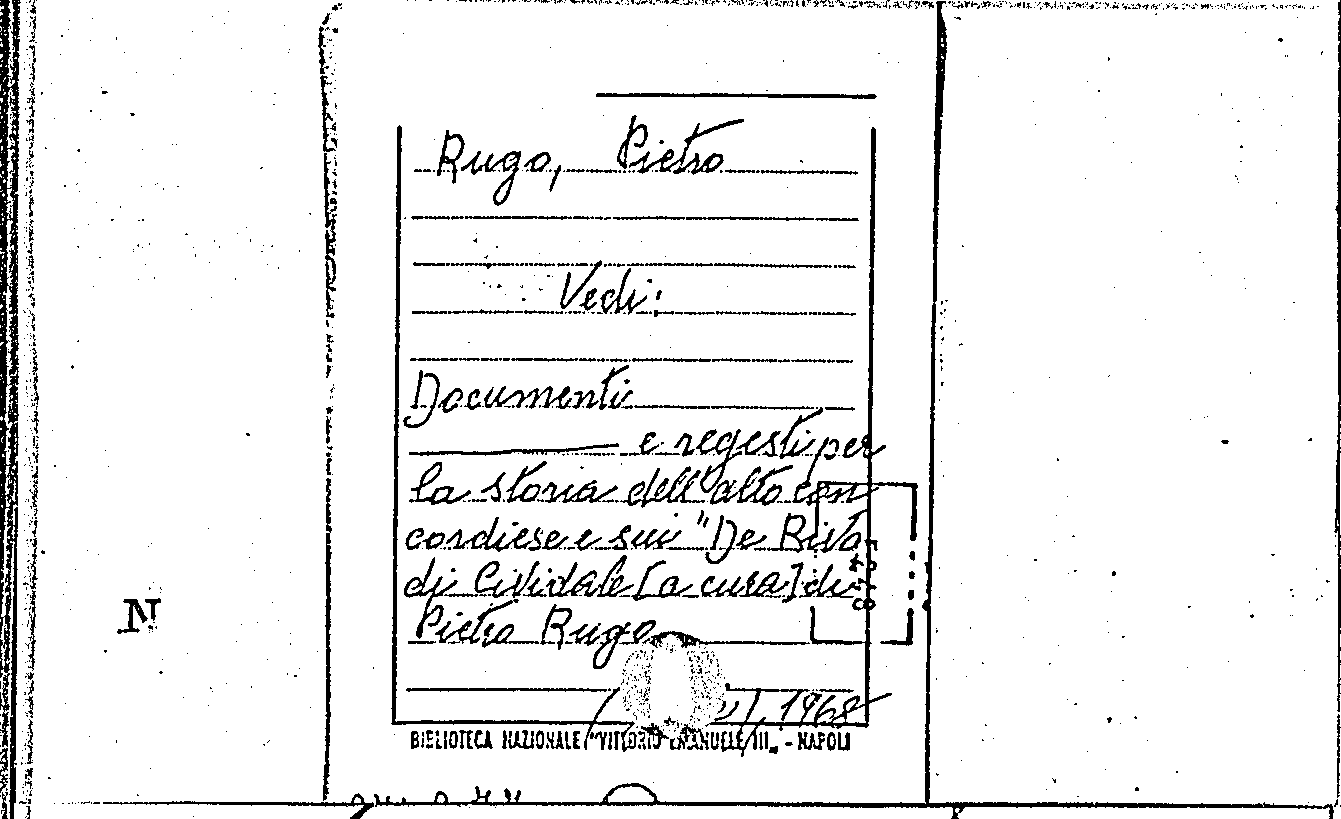 Rugo, Pietro
Vedi:
Documenti
e regesti per
la storia dell'alto con
cordiese e sui "De Riva
di Cividale [a cura] di
Pietro Rugo
1968
BIBLIOTECA NAZIONALE "VITTORIO EMANUELE III„ - NAPOLI
N